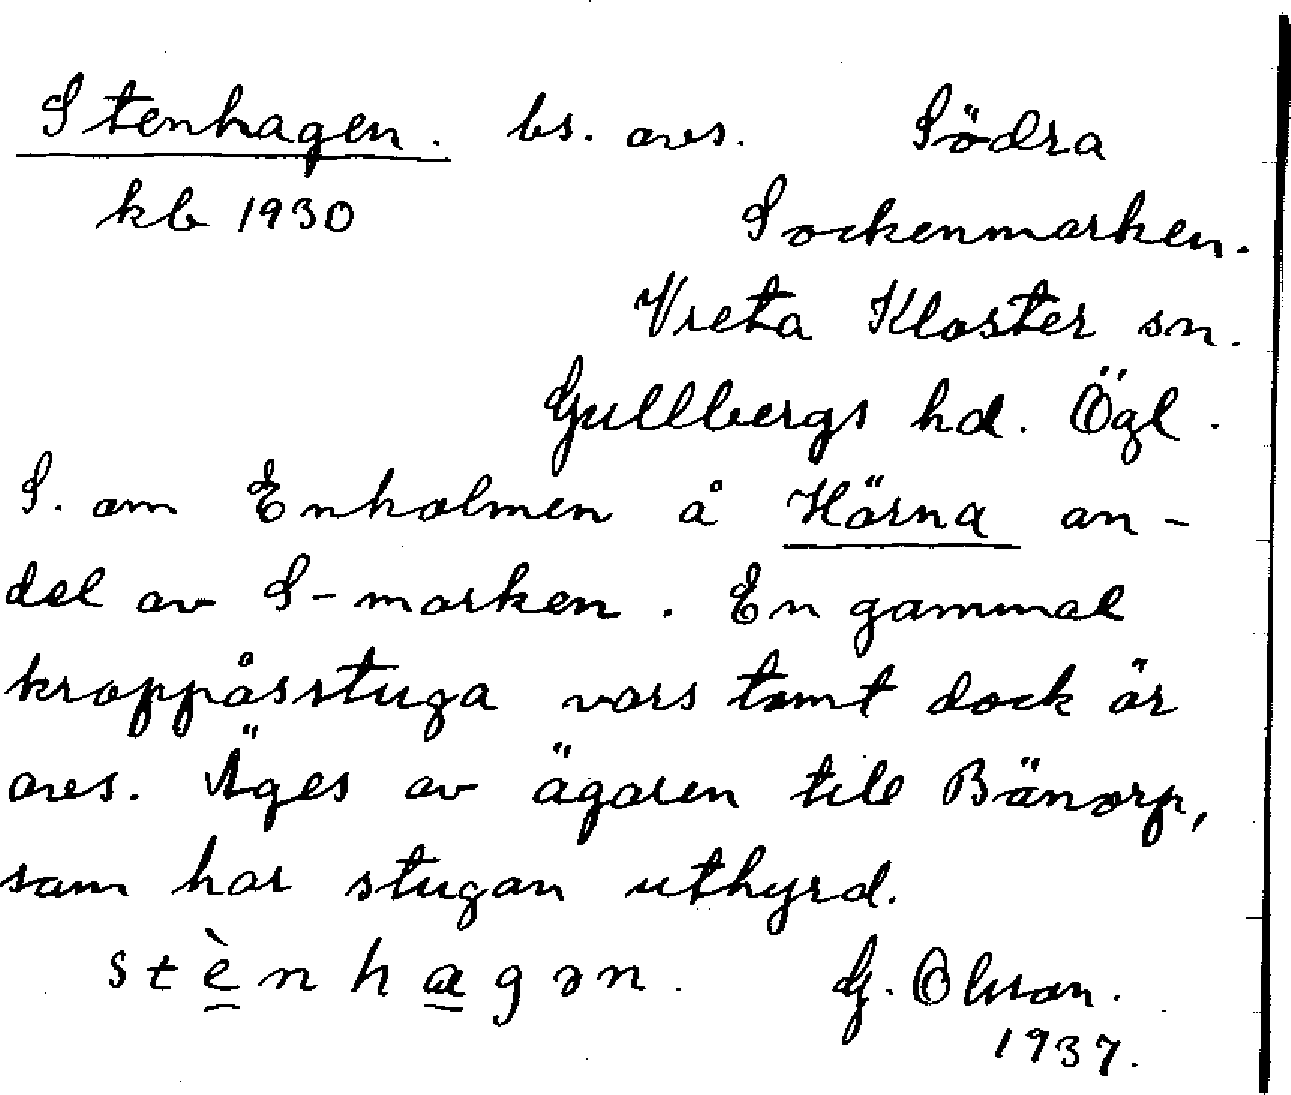 Stenhagen. bs. avs. Södra
kb 1930 Sockenmarken.
Vreta Kloster sn.
Gullbergs hd. Ögl.
S. om Enholmen å Härna an-
del av S-marken. En gammal
kroppåsstuga vars tomt dock är
avs. Äges av ägaren till Bänorp,
som har stugan uthyrd.
stènhagən. G. Olsson.
1937.